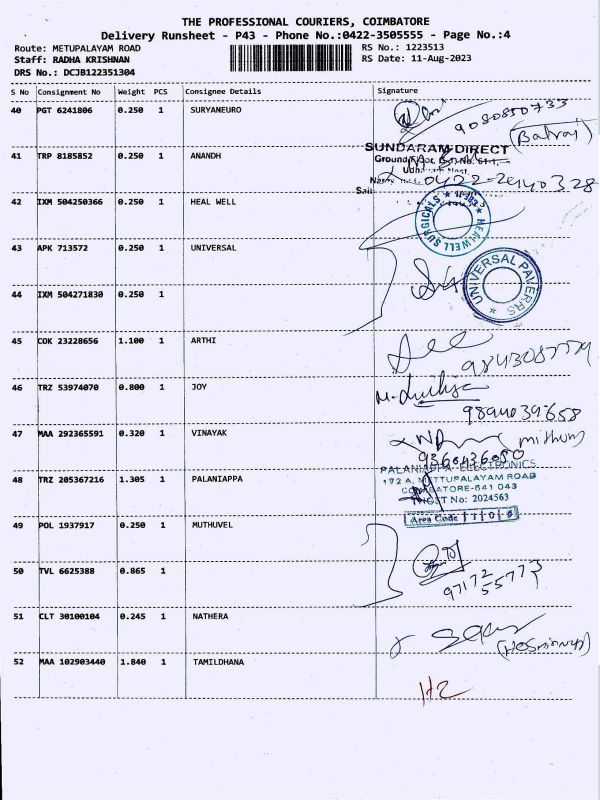 THE PROFESSIONAL COURIERS, COIMBATORE
Delivery Runsheet - P43 - Phone No.:0422-3505555 - Page No.:4
Route: METUPALAYAM ROAD RS No.: 1223513
Staff: RADHA KRISHNAN RS Date: 11-Aug-2023
DRS No.: DCJB122351304
S No Consignment No Weight PCS Consignee Details Signature
40 PGT 6241806 0.250 1 SURYANEURO
9080850733
(Balraj)
SUNDARAM DIRECT
41 TRP 8185852 0.250 1 ANANDH
Ground Floor,
42 IXM 504250366 0.250 1 HEAL WELL
HEALWELL SURGICALS
43 APK 713572 0.250 1 UNIVERSAL
UNIVERSAL PAVERS
44 IXM 504271830 0.250 1
45 COK 23228656 1.100 1 ARTHI
46 TRZ 53974070 0.800 1 JOY
9894039658
47 MAA 292365591 0.320 1 VINAYAK
9360436080
PALANIAPPA ELECTRONICS
48 TRZ 205367216 1.305 1 PALANIAPPA
192 A, METTUPALAYAM ROAD
COIMBATORE-641 043
TNGST No: 2024563
Area Code
49 POL 1937917 0.250 1 MUTHUVEL
50 TVL 6625388 0.865 1
97172
55773
51 CLT 30100104 0.245 1 NATHERA
52 MAA 102903440 1.840 1 TAMILDHANA